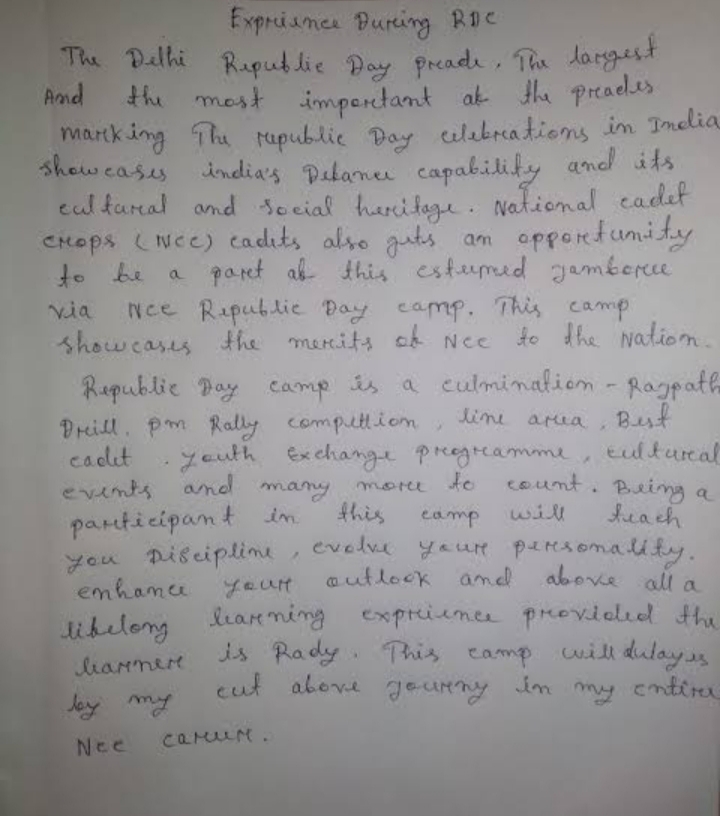 Exprience During RDC
The Delhi Republic Day preade. The largest
And the most important of the preades
marking The republic Day celebrations in India
showcases india's Defance capability and its
cultural and social heritage. National cadet
crops (NCC) cadets also gets an opportunity
to be a part of this estemed jamboree
via NCC Republic Day camp. This camp
showcases the merits of NCC to the Nation.
Republic Day camp is a culmination - Rajpath
Drill. pm Rally compettion, line area, Best
cadet. youth Exchange programme, cultural
events and many more to count. Being a
participant in this camp will teach
you Discipline, evolve your personality.
enhance your outlook and above all a
lifelong learning exprience provided the
learner is Rady. This camp will
by my cut above journy in my entire
NCC careure.